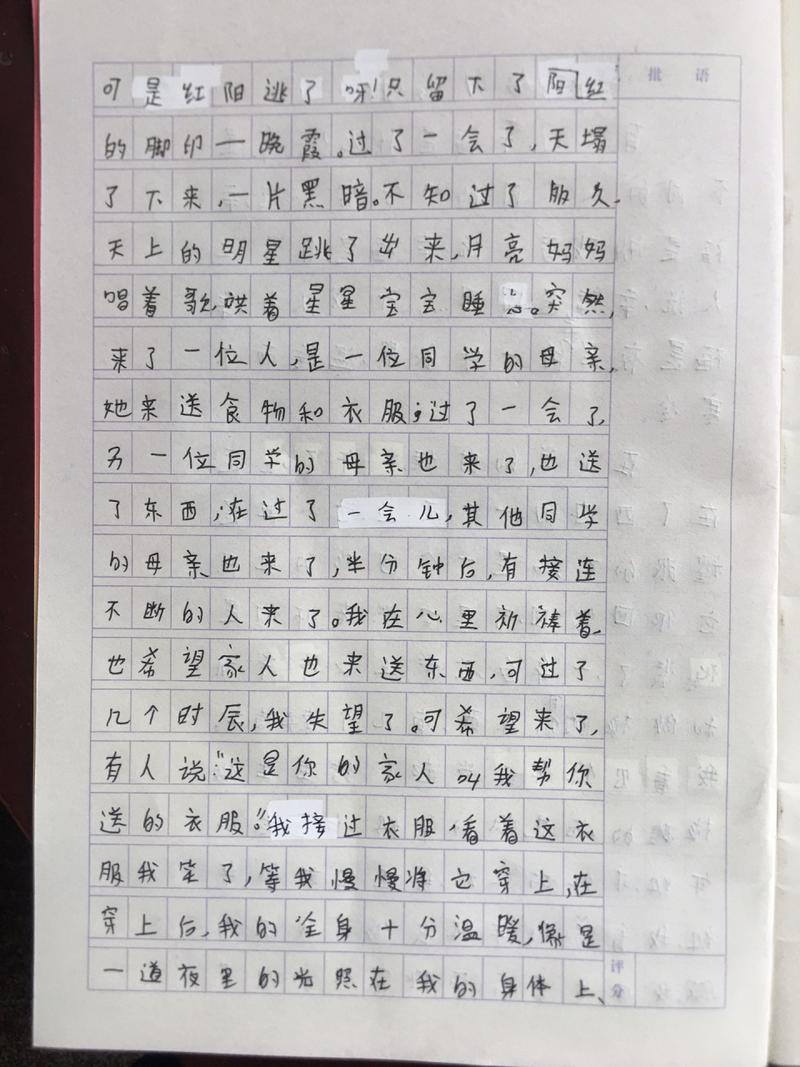 批 语
可是红阳逃了呀!只留下了阳红
的脚印一晚霞。过了一会了,天塌
了下来,一片黑暗。不知过了般久.
天上的明星跳了出来,月亮妈妈
唱着歌,哄着星星宝宝睡。突然,
来了一位人,是一位同学的母亲,
她来送食物和衣服;过了一会了,
另一位同学的母亲也来了,也送
了东西;在过了一会儿,其他同学
的母亲也来了,半分钟后,有接连
不断的人来了。我在心里祈裤着,
也希望家人也来送东西,可过了
几个时辰,我失望了。可希望来了,
有人说:"这是你的家人叫我帮你
送的衣服。"我接过衣服,看着这衣
服我笑了,等我慢慢将它穿上,在
穿上后,我的全身十分温暖,像是
一道夜里的光照在我的身体上、
评分